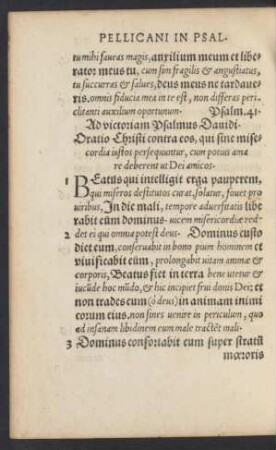 PELLICANI IN PSAL-
tu mihi fauras magis, auxilium meum et libe-
rator meus tu, cum sim fragilis & angustiatus,
tu succurras & salues, deus meus ne tardaue-
ris. omnis fiducia mea in te est, non differas peri
clitanti auxilium oportunum. Psalm. 41.
Ad victoriam Psalmus Dauidi.
Oratio Christi contra eos, qui sine miser-
cordia iustos persequuntur, cum potius ama
re deberent ut Dei amicos.
1 BEatus qui intelligit erga pauperem,
qui miseros destitutos curat, solatur, fouet pro
uiribus, In die mali, tempore aduersitatis libe
rabit eum dominus. uicem misericordiæ red-
2 det ei qui omnia potest deus. Dominus custo
diet eum, conseruabit in bono pium hominem et
viuificabit eum, prolongabit uitam animæ &
corporis, Beatus fiet in terra bene utetur &
iucunde hoc mundo, & hic incipiet frui donis Dei: et
non trades eum (ô deus) in animam inimi
corum eius. non sines uenire in periculum, quo
ad insanam libidinem eum male tractent mali.
3 Dominus confortabit eum super stratum
mœroris